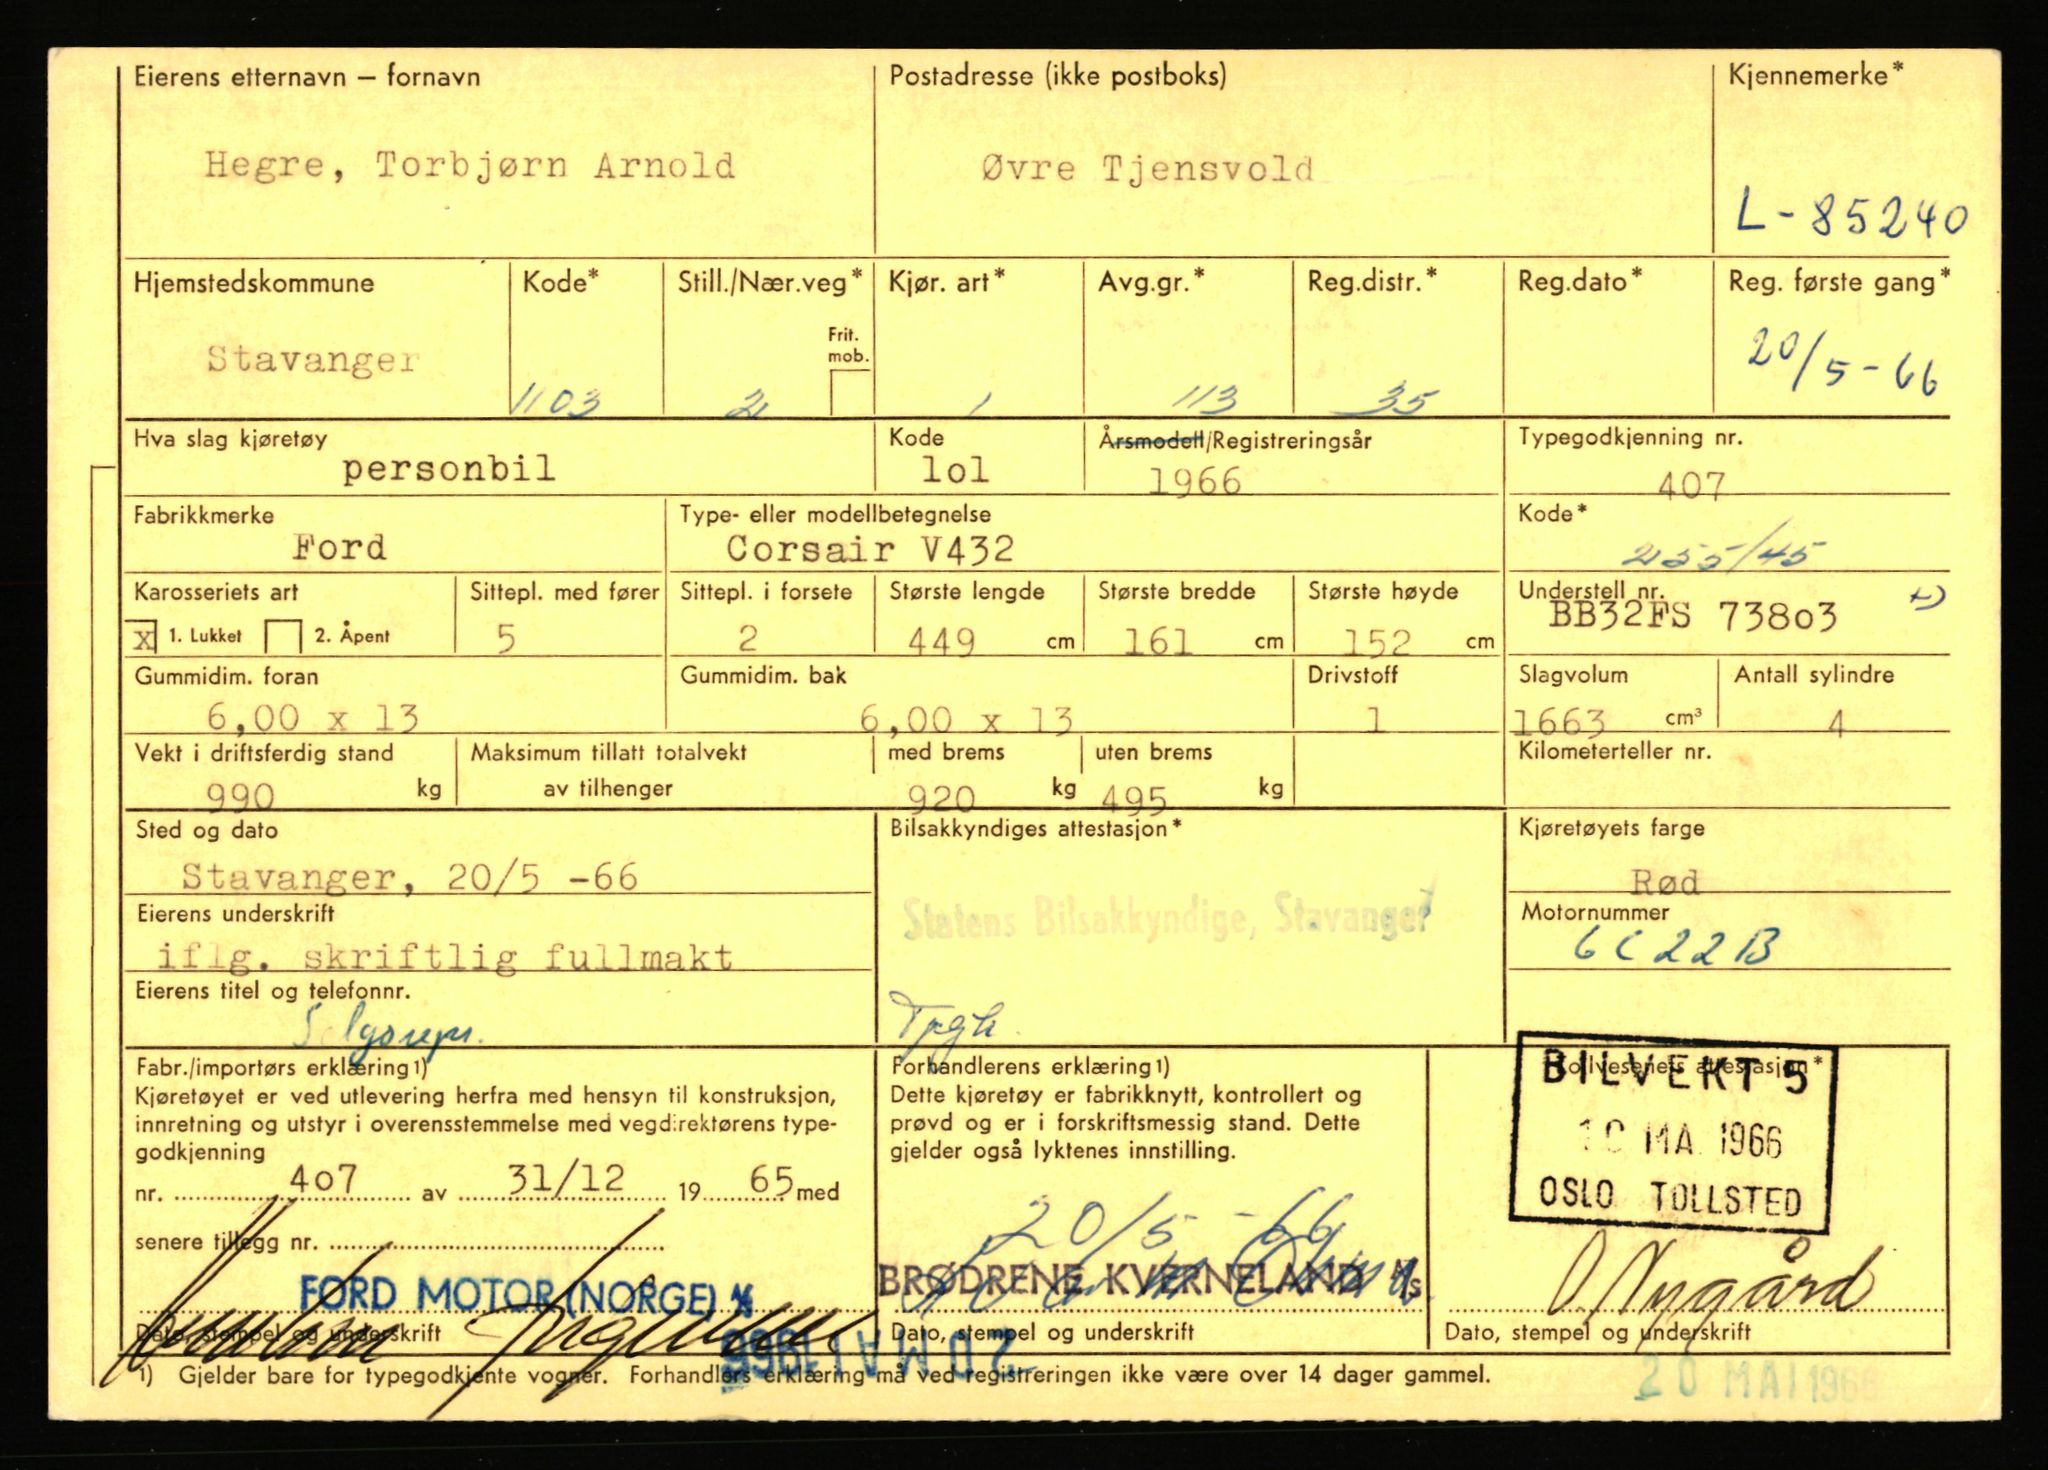 Eierens etternavn – fornavn
Postadresse (ikke postboks)
Kjennemerke*
Hegre, Torbjørn Arnold
Øvre Tjensvold
L-85240
Hjemstedskommune
Kode*
Still./Nær.veg*
Kjør. art*
Avg.gr.*
Reg.distr.*
Reg.dato*
Reg. første gang*
Frit.
mob.
Stavanger
1103
2
1
113
35
20/5-66
Hva slag kjøretøy
Kode
Årsmodell/Registreringsår
Typegodkjenning nr.
personbil
lol
1966
407
Fabrikkmerke
Type- eller modellbetegnelse
Kode*
Ford
Corsair V432
255/45
Karosseriets art
Sittepl. med fører
Sittepl. i forsete
Største lengde
Største bredde
Største høyde
Understell nr.
X 1. Lukket 2. Åpent
5
2
449 cm
161 cm
152 cm
BB32FS 738o3
Gummidim. foran
Gummidim. bak
Drivstoff
Slagvolum
Antall sylindre
6,00 x 13
6,00 x 13
1
1663 cm³
4
Vekt i driftsferdig stand
Maksimum tillatt totalvekt
av tilhenger
med brems
uten brems
Kilometerteller nr.
990 kg
920 kg
495 kg
Sted og dato
Bilsakkyndiges attestasjon*
Kjøretøyets farge
Stavanger, 20/5 -66
Rød
Eierens underskrift
Statens Bilsakkyndige, Stavanger
Motornummer
iflg. skriftlig fullmakt
6C22B
Eierens titel og telefonnr.
Salgsrepr.
Fabr./importørs erklæring1)
Kjøretøyet er ved utlevering herfra med hensyn til konstruksjon,
innretning og utstyr i overensstemmelse med vegdirektørens type-
godkjenning
nr. 4o7 av 31/12 19 65 med
senere tillegg nr.
FORD MOTOR (NORGE) A/S
Dato, stempel og underskrift
Forhandlerens erklæring1)
Dette kjøretøy er fabrikknytt, kontrollert og
prøvd og er i forskriftsmessig stand. Dette
gjelder også lyktenes innstilling.
20/5-66
BRØDRENE KVERNELAND A/S
Dato, stempel og underskrift
20 MAI 1966
Tollvesenets attestasjon*
BILVEKT 5
10 MA. 1966
OSLO TOLLSTED
O Nygård
Dato, stempel og underskrift
1) Gjelder bare for typegodkjente vogner. Forhandlers erklæring må ved registreringen ikke være over 14 dager gammel.
20 MAI 1966